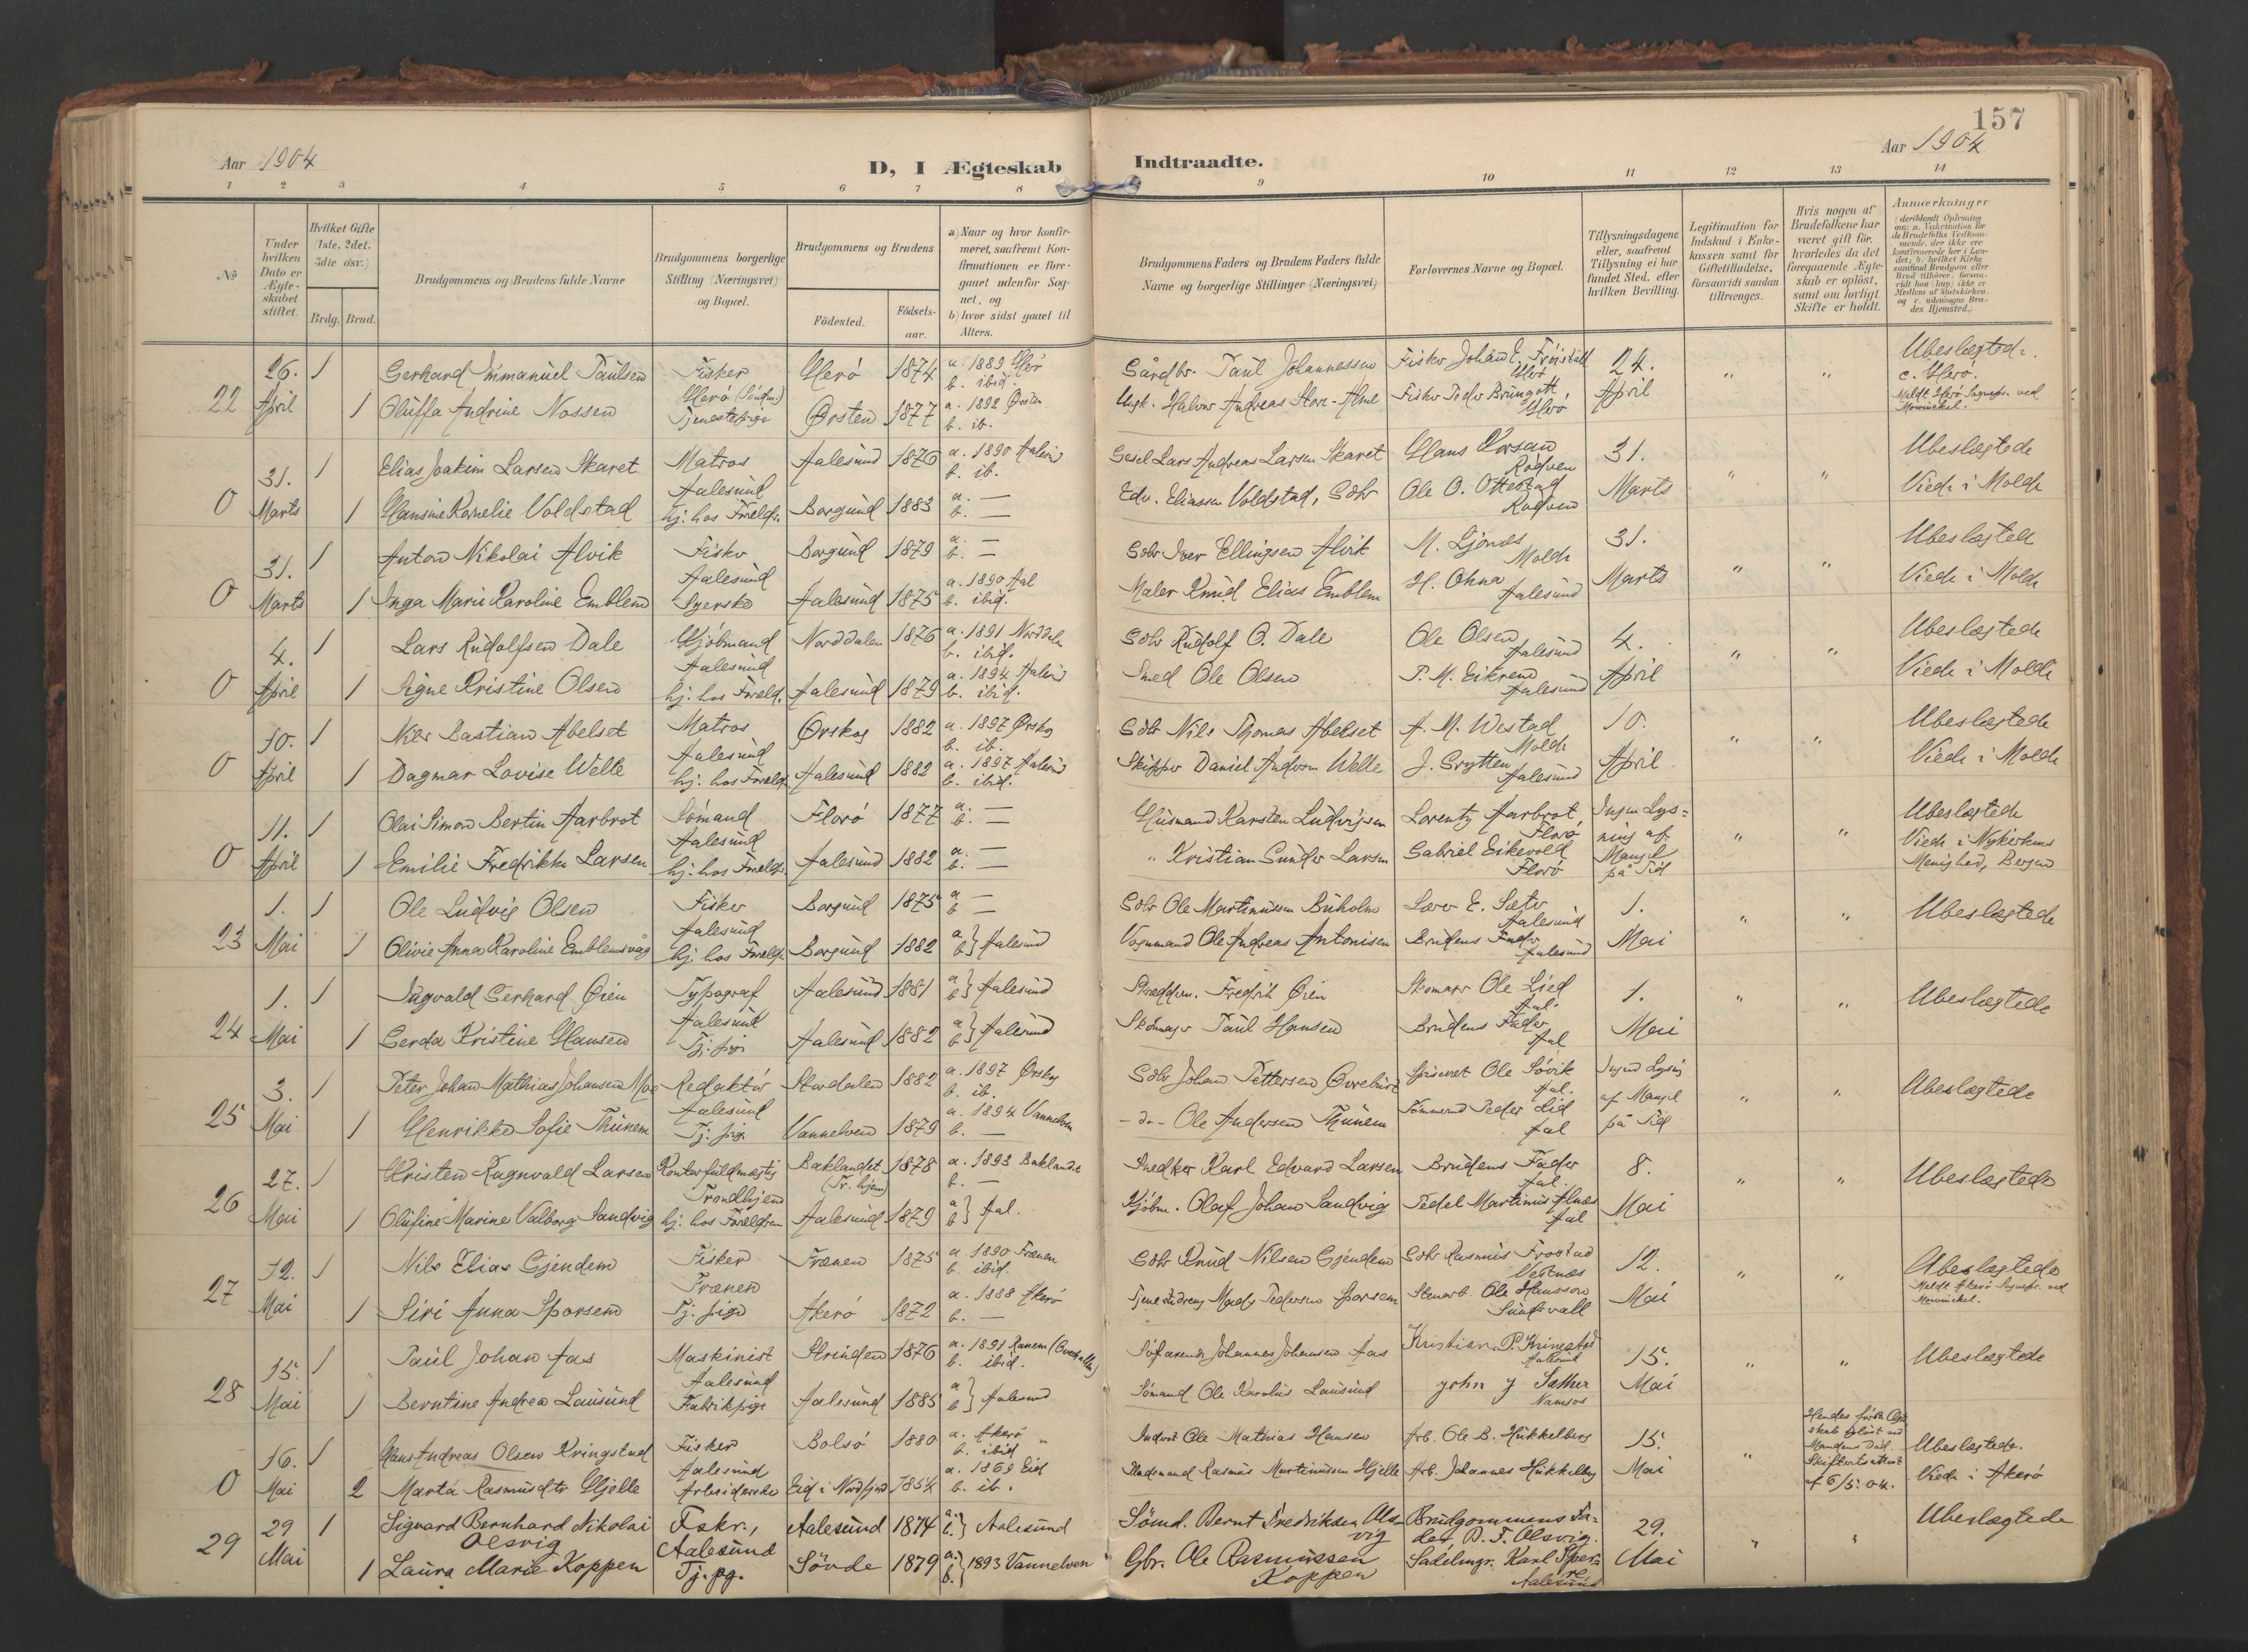 157
Aar 1904
D, I Ægteskab Indtraadte.
Aar 1904
1 2 3 4 5 6 7 8 9 10 11 12 13 14
No
Under hvilken Dato er Ægteskabet stiftet.
Hvilket Gifte (1ste, 2det, 3die osv.)
Brdg. Brud.
Brudgommens og Brudens fulde Navne
Brudgommens borgerlige Stilling (Næringsvei) og Bopæl.
Brudgommens og Brudens
Födested.
Födselsaar.
a) Naar og hvor konfirmeret, saafremt Konfirmationen er foregaaet udenfor Sognet, og
b) hvor sidst gaaet til Alters.
Brudgommens Faders og Brudens Faders fulde Navne og borgerlige Stillinger (Næringsvei)
Forlovernes Navne og Bopæl.
Tillysningsdagene eller, saafremt Tillysning ei har fundet Sted, efter hvilken Bevilling.
Legitimation for Indskud i Enkekassen samt for Giftetilladelse, forsaavidt saadan tiltrænges.
Hvis nogen af Brudefolkene har været gift för, hvorledes da det foregaaende Ægteskab er oplöst, samt om lovligt Skifte er holdt.
Anmærkninger
22 26. April 1 Gerhard Immanuel Paulsen Fisker Herö 1874 a. 1889 Herö b. ibid. Gårdbr. Paul Johannessen Fisker Johan E. Herö 24. April " " Ubeslægtede. c. Herö.
1 Oluffa Andrine Nossen Tjenestepige Ørsten 1877 a. 1892 Ørsten b. ib. Ungk. Halvor Andreas Fisker Peder Herö
0 31. Marts 1 Elias Joakim Larsen Skaret Matros Aalesund Aalesund 1876 a. 1890 Aalesund b. ib. Lars Andreas Larsen Skaret Hans Rödven 31. Marts " " Ubeslægtede
1 Hansine Kornelie Voldstad hj. hos Foreldr. Borgund 1883 a. — b. — Edv. Eliassen Voldstad, Gdbr Ole O. Rödven Viede i Molde
0 31. Marts 1 Anton Nikolai Alvik Fisker Aalesund Borgund 1879 a. — b. — Gdbr Iver Ellingsen Alvik M. Molde 31. Marts " " Ubeslægtede
1 Inga Marie Karoline Emblem Syerske Aalesund 1875 a. 1890 Aal b. ibid. Maler Knud Elias Emblem H. Aalesund Viede i Molde
0 4. April 1 Lars Rudolfsen Dale Kjöbmand Aalesund Norddalen 1876 a. 1891 Norddalen b. ibid. Gdbr Rudolf O. Dale Ole Olsen Aalesund 4. April " " Ubeslægtede
1 Signe Kristine Olsen hj. hos Foreld. Aalesund 1879 a. 1894 Aalesund b. ibid. Smed Ole Olsen P. M. Eikrem Aalesund Viede i Molde
0 10. April 1 Nils Bastian Abelset Matros Aalesund Ørskog 1882 a. 1897 Ørskog b. ib. Gdbr Nils Thomas Abelset A. M. Westad Molde 10. April " " Ubeslægtede
1 Dagmar Lovise Welle hj. hos Foreldr. Aalesund 1882 a. 1897 Aalesund b. ibid. Skipper Daniel Andersen Welle J. Grytten Aalesund Viede i Molde
0 11. April 1 Olai Simon Bertin Aarbrot Sömand Aalesund Florö 1877 a. — b. — Husmand Karsten Ludvigsen Lorentz Aarbrot, Florö Ingen Lysning af Mangel på Tid " " Ubeslægtede
1 Emilie Fredrikke Larsen hj. hos Foreldr. Aalesund 1882 a. — b. — " Kristian Gunder Larsen Gabriel Eikevold Florö Viede i Nykirkens Menighed, Bergen
23 1. Mai 1 Ole Ludvig Olsen Fisker Aalesund Borgund 1875 a — b — Gdbr Ole Martinussen Buholm E. Sæter Aalesund 1. Mai " " Ubeslægtede
1 Olivie Anna Karoline Emblemsvåg hj. hos Foreldr. Borgund 1882 a b } Aalesund Vognmand Ole Andreas Antonisen Brudens Fader Aalesund
24 1. Mai 1 Ingvald Gerhard Øien Typograf Aalesund Aalesund 1881 a b } Aalesund Skredderm. Fredrik Øien Skomager Ole Lied Aal. 1. Mai " " Ubeslægtede
1 Gerda Kristine Hansen Tj. pige Aalesund 1882 a b } Aalesund Skomager Paul Hansen Brudens Fader Aal
25 3. Mai 1 Peter Johan Mathias Johansen Moe Redaktör Aalesund Stordalen 1882 a. 1897 Ørskog b. ib. Gdbr Johan Pettersen Ole Sövik Aal. Ingen Lysning af Mangel på Tid " " Ubeslægtede
1 Henrikke Sofie Thunem Tj. pige Vannelven 1879 a. 1894 Vannelven b. — -do- Ole Andersen Thunem Tömmermd Peder Lid Aal
26 27. Mai 1 Kristen Ragnvald Larsen Kontorfuldmægtig Trondhjem Baklandet (Tr. hjem) 1878 a. 1893 Baklandet b. — Snedker Karl Edvard Larsen Brudens Fader Aal. 8. Mai " " Ubeslægtede
1 Olufine Marine Valborg Sandvig hj. hos Foreldren Aalesund 1879 a b } Aal. Kjöbm. Olaf Johan Sandvig Martinus Alnæs Aal
27 12. Mai 1 Nils Elias Gjendem Fisker Frænen Frænen 1875 a. 1890 Frænen b. ibid. Gdbr Knud Nilsen Gjendem Gdbr Rasmus Frostad Vestnæs 12. Mai " " Ubeslægtede
1 Siri Anna Sporsem Tj. pige Akerö 1872 a. 1888 Akerö b. — Mads Pedersen Sporsem Stenarb. Ole Hansson Sundsvall
28 15. Mai 1 Paul Johan Aas Maskinist Aalesund Strinden 1876 a. 1891 Ranem (Overhallen) b. ibid. Johannes Johansen Aas Kristian P. Kringstad Aalesund 15. Mai " " Ubeslægtede
1 Berntine Andrea Lausund Fabrikpige Aalesund 1885 a b } Aalesund Sömand Ole Karolius Lausund John J Sæther Namsos
0 16. Mai 1 Hans Andreas Olsen Kringstad Fisker Aalesund Bolsö 1880 a. Akerö b. ibid Indrst Ole Mathias Hansen Arb. Ole B. Hukkelberg 15. Mai " Hendes förste Ægteskab oplöst ved Mandens Död. Skifteattest af 6/5. 04. Ubeslægtede.
2 Marta Rasmusdtr Hjelle Arbeiderske Eid i Nordfjord 1854 a. 1869 Eid b. ib. Rasmus Martinussen Hjelle Arb. Johannes Hukkelberg Viede i Akerö
29 29 Mai 1 Sigvard Bernhard Nikolai Olsvig Fskr., Aalesund Aalesund 1874 a. b. } Aalesund Sömd. Bernt Fredriksen Olsvig Brudgommens Fader, B. F. Olsvig. 29. Mai " " Ubeslægtede
1 Laura Marie Koppen Tj. pg. Sövde 1879 a. b. } 1893 Vannelven Gbr. Ole Rasmussen Koppen Sadelmgr. Karl Sperre Aalesund